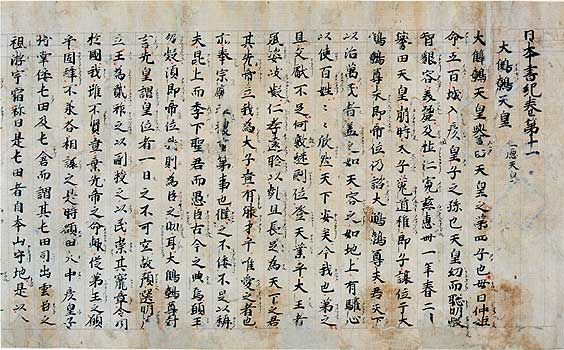 日本書紀卷第十一
大鷦鷯天皇
大鷦鷯天皇譽田天皇之第四子也母曰仲姬
命五百城入彥皇子之孫也天皇幼而聰明叡
智貌容美麗及壯仁寬慈惠卌一年春二
譽田天皇崩時太子菟道稚郎子讓位于大
鷦鷯尊未即帝位仍諮大鷦鷯尊夫君天下
以治萬民者蓋之如天容之如地上有驩心
以使百姓〻〻欣然天下安矣今我也弟之
且文獻不足何敢繼嗣位登天業乎大王者
風姿岐嶷仁孝遠聆以齒且長足為天下之君
其先帝立我為太子豈有能才乎唯愛之者也
亦奉宗廟社稷重事也僕之不佞不足以稱
夫昆上而季下聖君而愚臣古今之典焉願王
勿疑須即帝位我則為臣之助耳大鷦鷯尊對
言先皇謂皇位者一日之不可空故預選明
立王為貳祚之以嗣授之以民崇其寵章令聞
於國我雖不賢豈棄先帝之命輙從弟王之願
乎固辭不承各相讓之是時額田大中彥皇子
將掌倭屯田及屯倉而謂其屯田司出雲臣之
祖淤宇宿祢曰是屯田者自本山守地是以